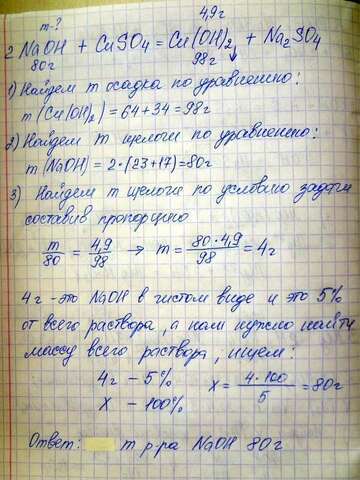 m-? 4,9г
2 NaOH + CuSO4 = Cu(OH)2 ↓ + Na2SO4
80г 98г
1) Найдем m осадка по уравнению:
m (Cu(OH)2) = 64+34 = 98г
2) Найдем m щелочи по уравнению:
m (NaOH) = 2·(23+17)=80г
3) Найдем m щелочи по условию задачи
составив пропорцию
m/80 = 4,9/98 → m = 80·4,9/98 = 4г
4г - это NaOH в чистом виде и это 5%
от всего раствора, а нам нужно найти
массу всего раствора, ищем:
4г – 5% x = 4·100/5 = 80г
x – 100%
Ответ: m р-ра NaOH 80г